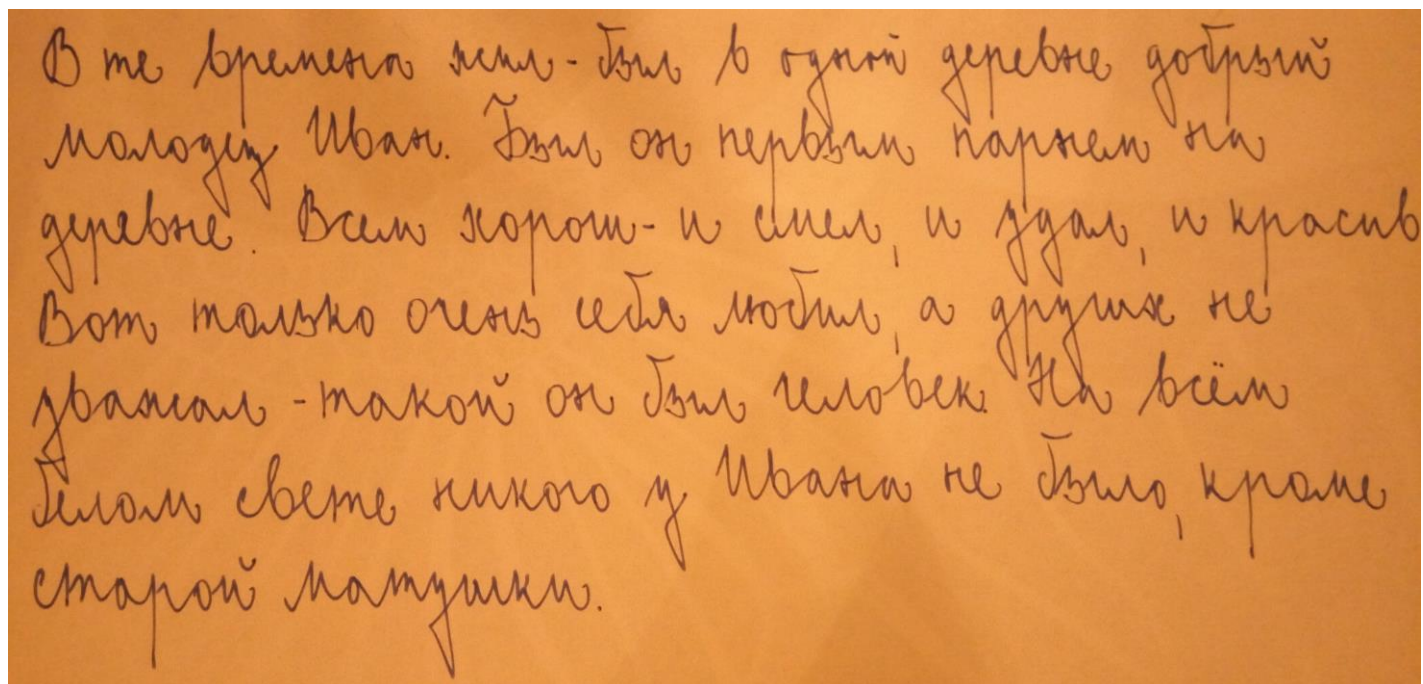 В те времена жил-был в одной деревне добрый
молодец Иван. Был он первым парнем на
деревне. Всем хорош - и смел, и удал, и красив
Вот только очень себя любил, а других не
уважал - такой он был человек. На всём
белом свете никого у Ивана не было, кроме
старой матушки.